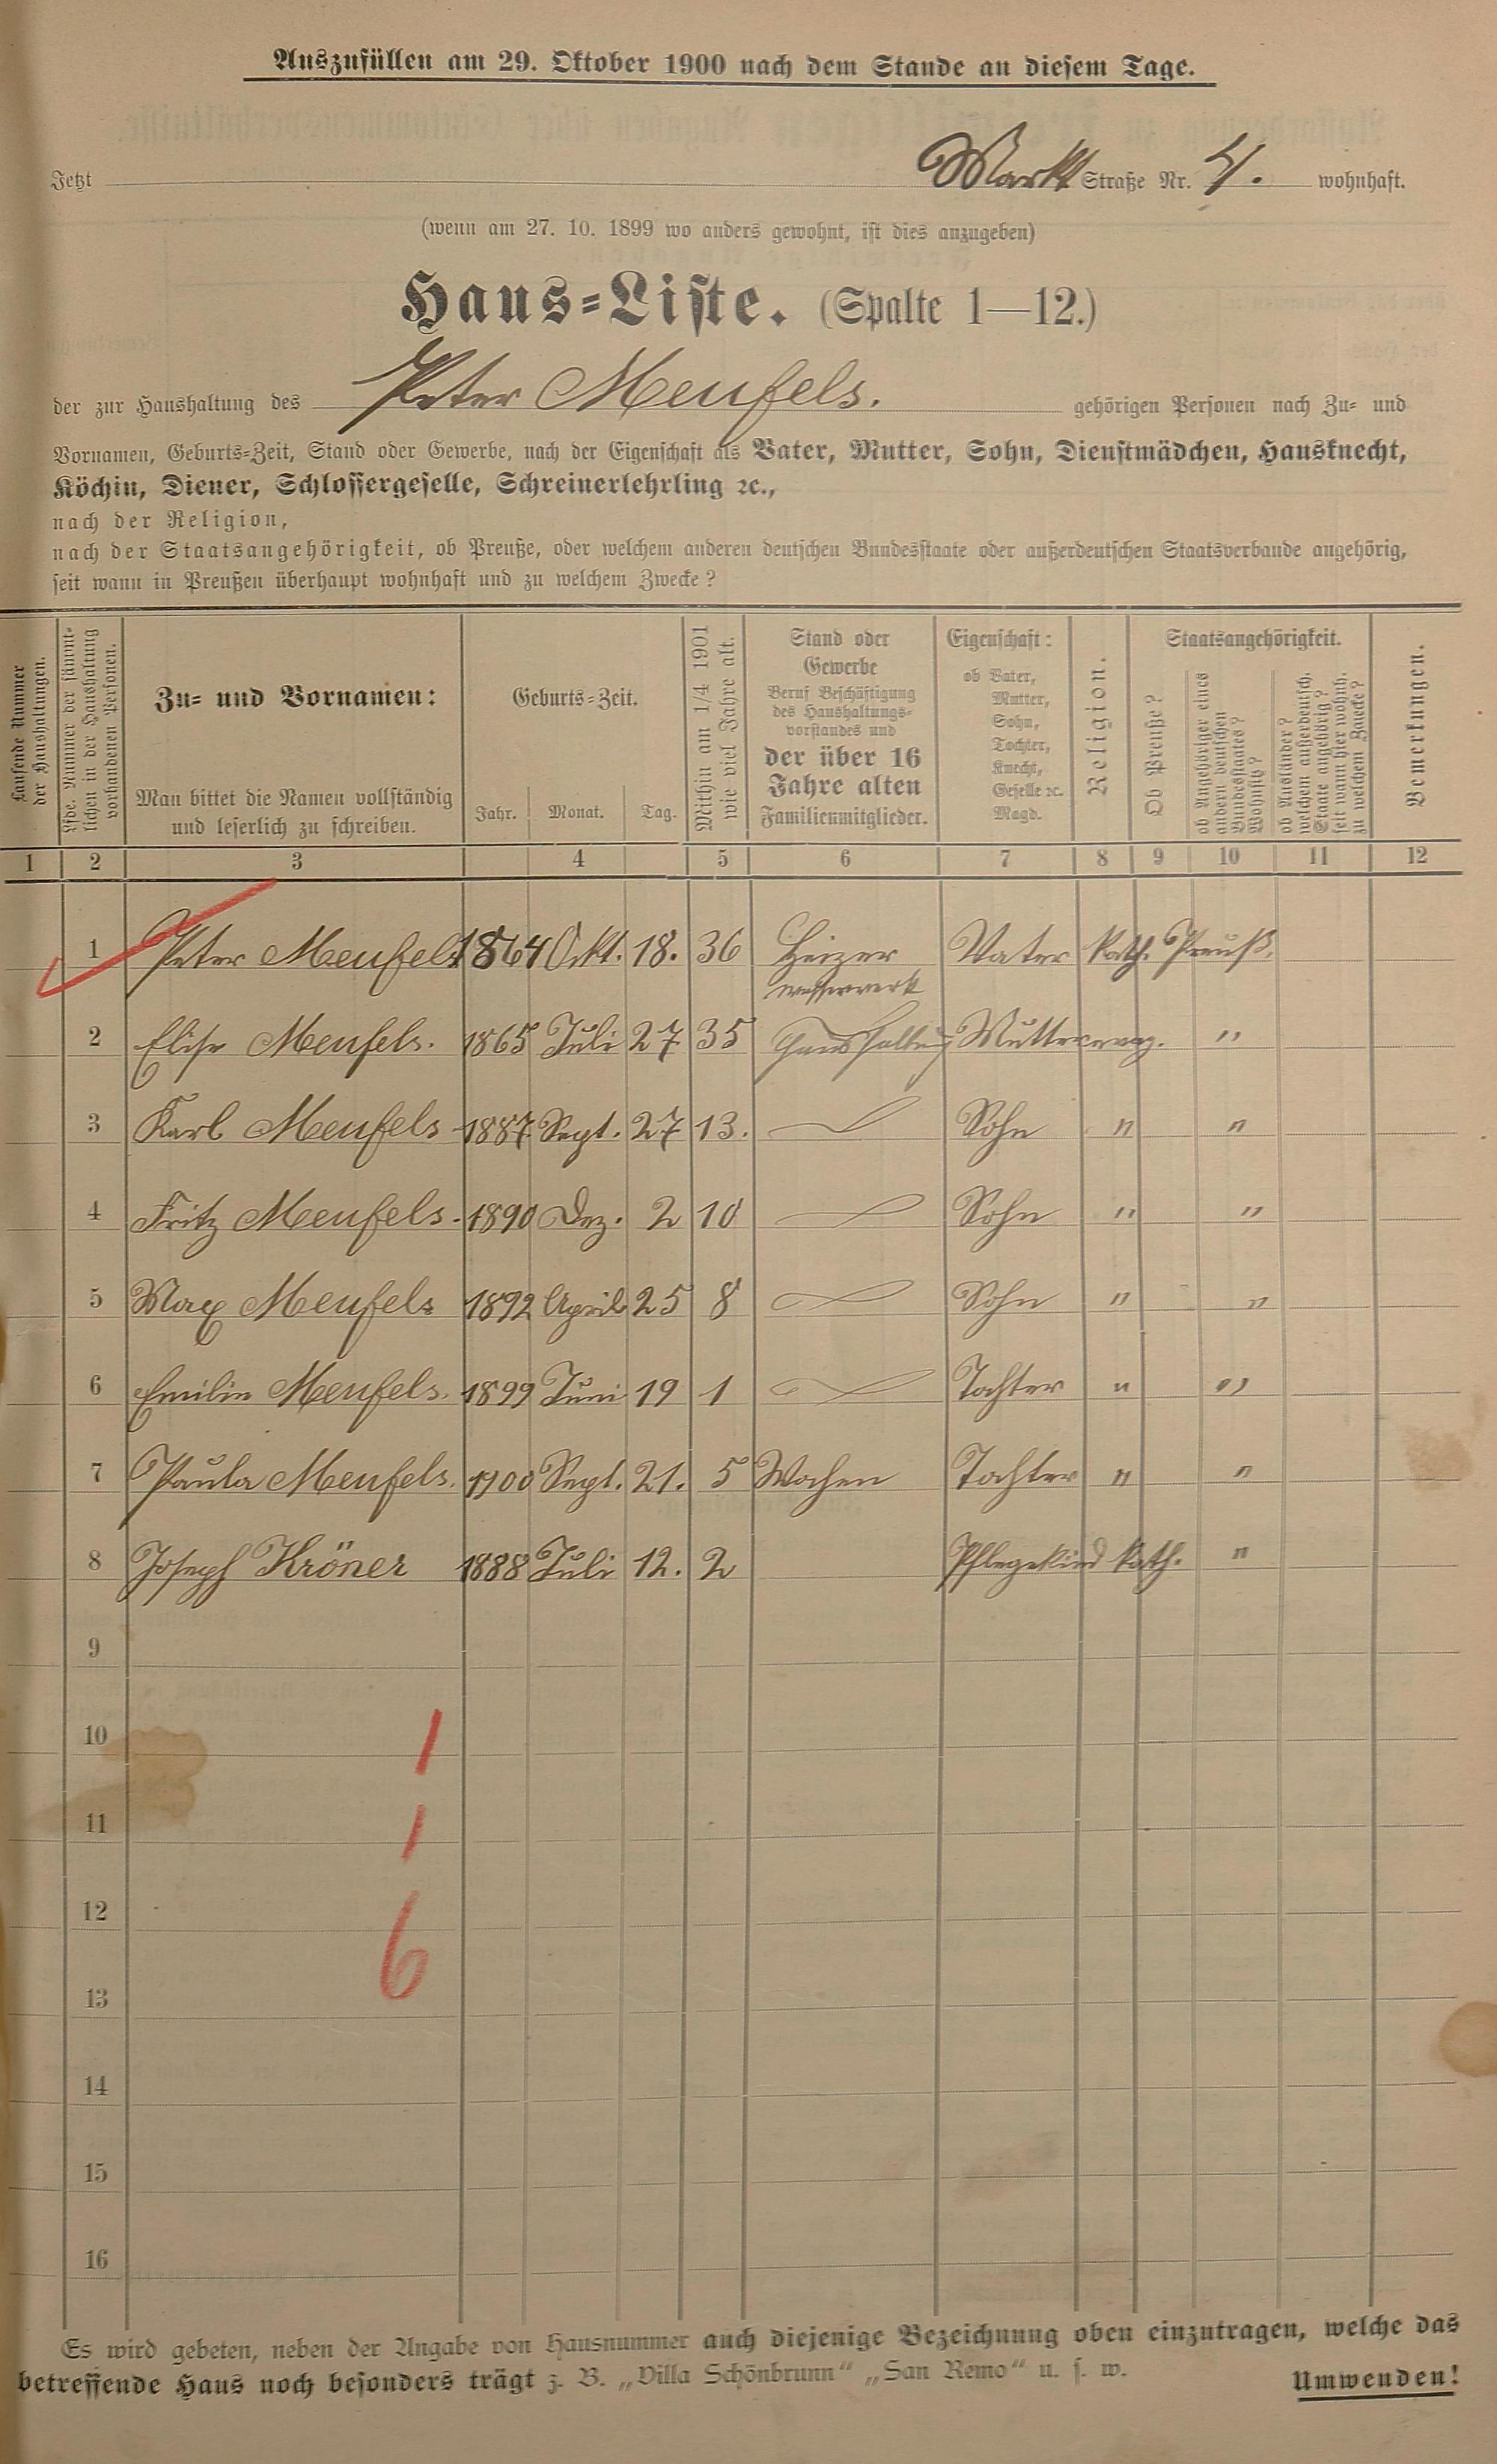 Auszufüllen am 29. Oktober 1900 nach dem Stande an diesem Tage.
Jetzt Markt Straße Nr. 4. wohnhaft.
(wenn am 27. 10. 1899 wo anders gewohnt, ist dies anzugeben)
Haus-Liste. (Spalte 1—12.)
der zur Haushaltung des Peter Meufels. gehörigen Personen nach Zu- und
Vornamen, Geburts-Zeit, Stand oder Gewerbe, nach der Eigenschaft als Vater, Mutter, Sohn, Dienstmädchen, Hausknecht,
Köchin, Diener, Schlossergeselle, Schreinerlehrling ꝛc.,
nach der Religion,
nach der Staatsangehörigkeit, ob Preuße, oder welchem anderen deutschen Bundesstaate oder außerdeutschen Staatsverbande angehörig,
seit wann in Preußen überhaupt wohnhaft und zu welchem Zwecke?
Laufende Nummer
der Haushaltungen.
Lfde. Nummer der sämmt-
lichen in der Haushaltung
vorhandenen Personen.
Zu- und Vornamen:
Man bittet die Namen vollständig
und leserlich zu schreiben.
Geburts-Zeit.
Jahr. Monat. Tag.
Mithin am 1/4 1901
wie viel Jahre alt.
Stand oder
Gewerbe
Beruf Beschäftigung
des Haushaltungs-
vorstandes und
der über 16
Jahre alten
Familienmitglieder.
Eigenschaft:
ob Vater,
Mutter,
Sohn,
Tochter,
Knecht,
Geselle ꝛc.
Magd.
Religion.
Staatsangehörigkeit.
Ob Preuße?
ob Angehöriger eines
andern deutschen
Bundesstaates?
Wohnsitz?
ob Ausländer?
welchem außerdeutsch.
Staate angehörig?
seit wann hier wohnh.
zu welchem Zwecke?
Bemerkungen.
1 2 3 4 5 6 7 8 9 10 11 12
1 Peter Meufels 1864 Okt. 18. 36 Heizer Vater kath. Preuß.
Wasserwerk
2 Elise Meufels. 1865 Juli 27 35 Haushaltung Mutter evag. "
3 Karl Meufels 1887 Sept. 27 13. Sohn " "
4 Fritz Meufels. 1890 Dez. 2 10 Sohn " "
5 Max Meufels 1892 April 25 8 Sohn " "
6 Emilie Meufels. 1899 Juni 19 1 Tochter " "
7 Paula Meufels. 1900 Sept. 21. 5 Wochen Tochter " "
8 Joseph Kröner 1888 Juli 12. 2 Pflegekind kath. "
9
10 1
11 1
12 6
13
14
15
16
Es wird gebeten, neben der Angabe von Hausnummer auch diejenige Bezeichnung oben einzutragen, welche das
betreffende Haus noch besonders trägt z. B. „Villa Schönbrunn“ „San Remo“ u. s. w. Umwenden!